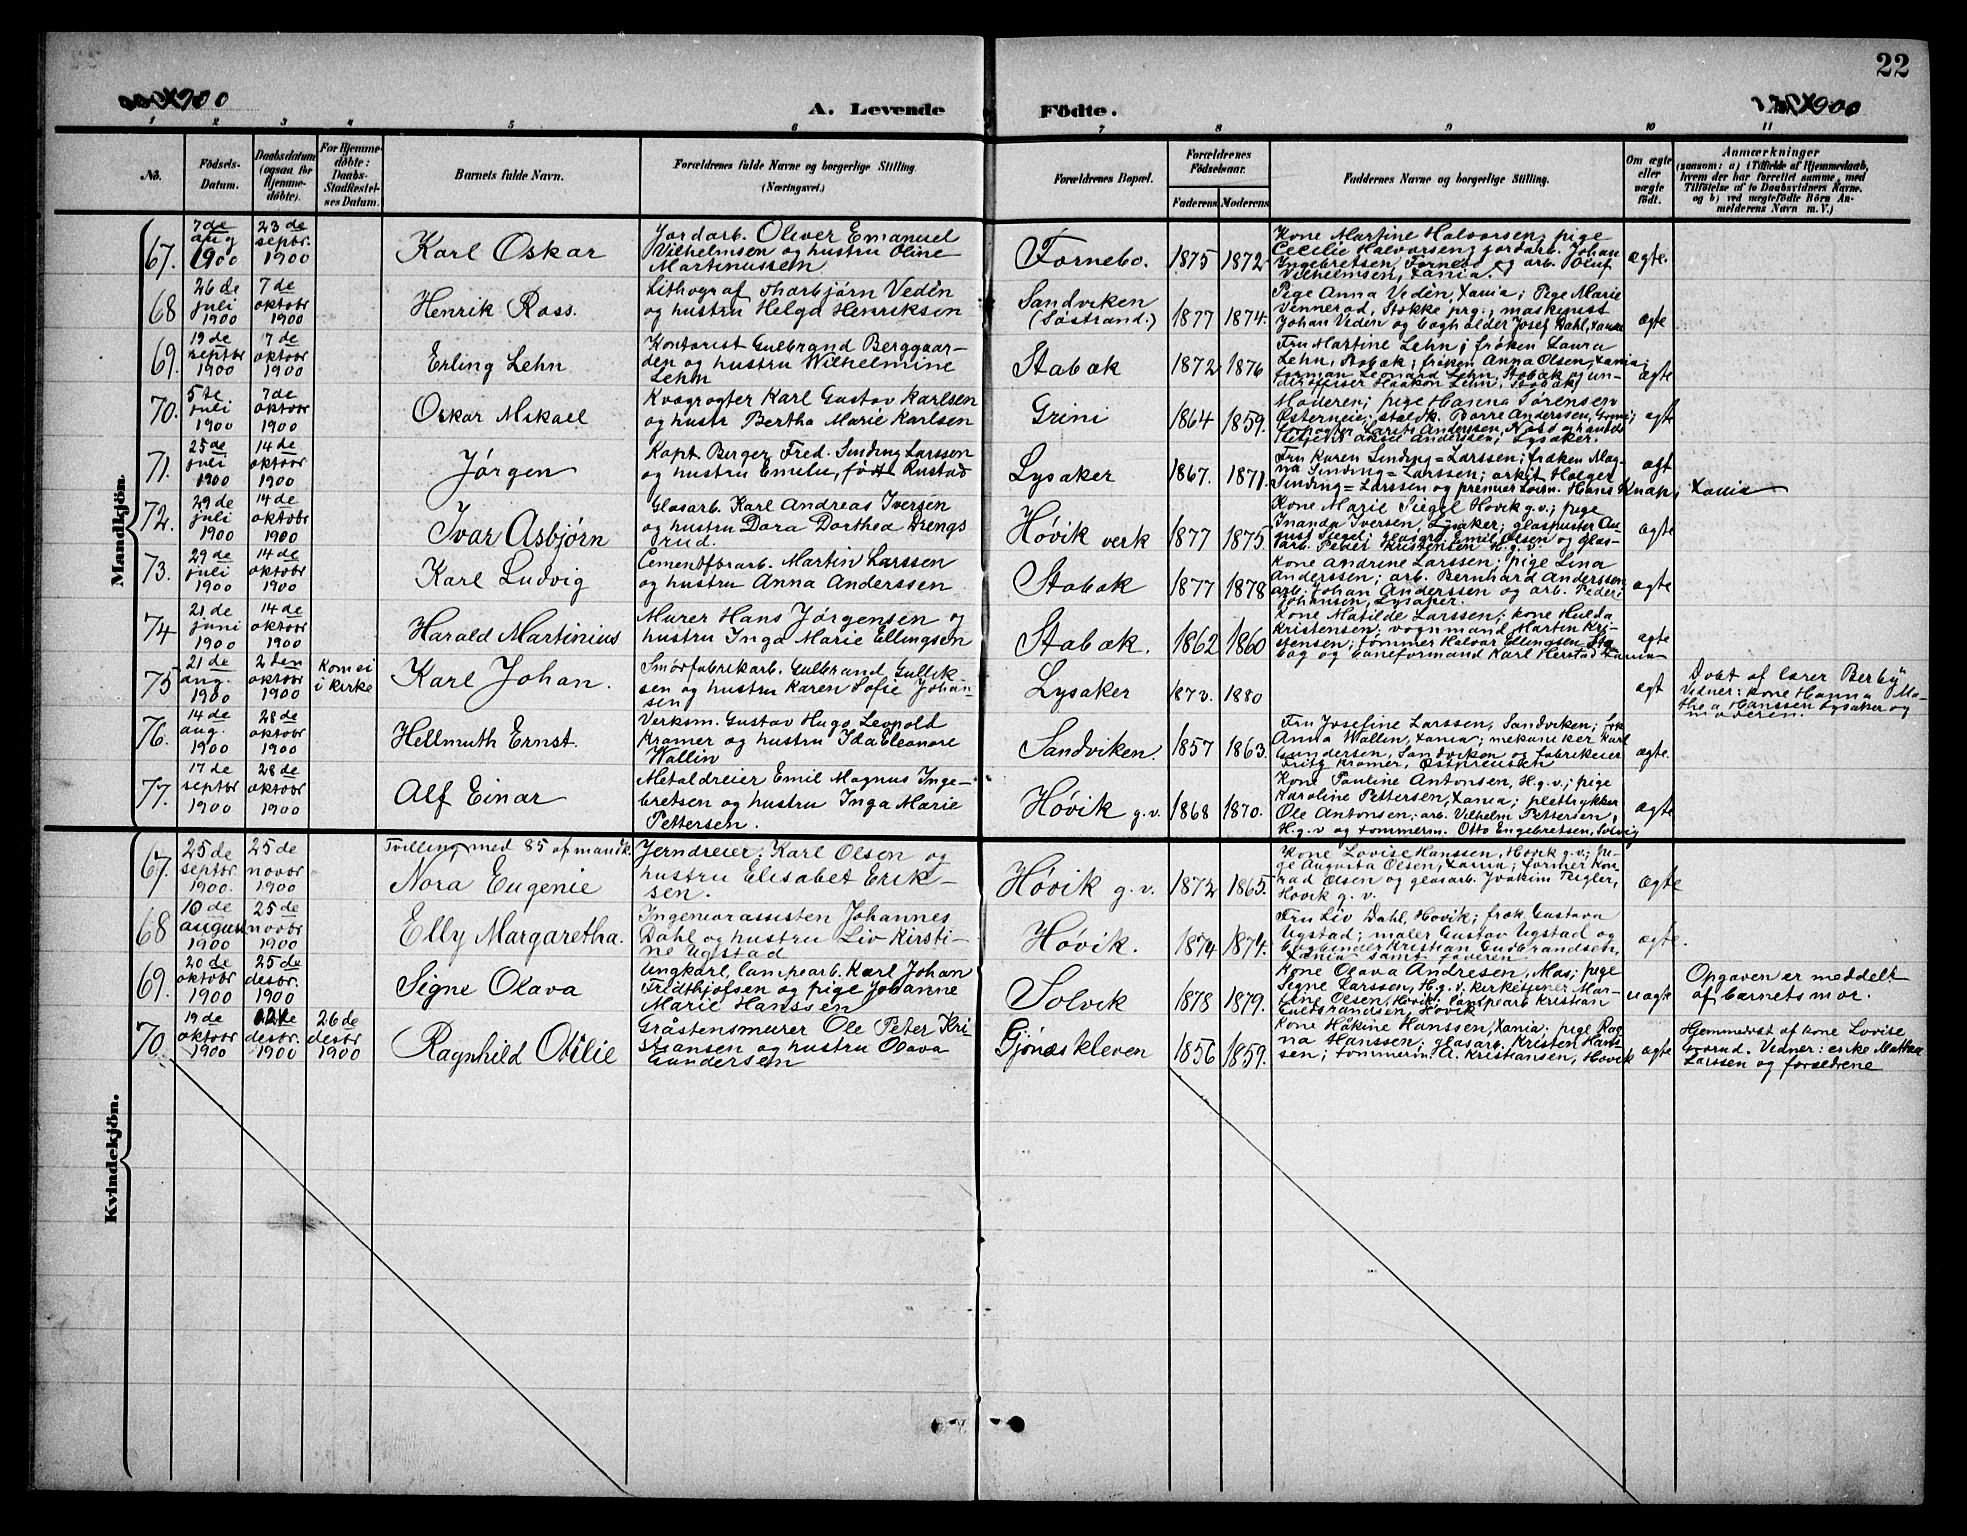 22
1900
1900
A. Levende
Födte.
1 2 3 4 5 6 7 8 9 10 11
No.
Födsels-
Datum.
Daabsdatum
(ogsaa for
Hjemme-
døbte).
For Hjemme-
døbte:
Daabs-
Stadfæstel-
ses Datum.
Barnets fulde Navn.
Forældrenes fulde Navne og borgerlige Stilling.
(Næringsvei.)
Forældrenes Bopæl.
Forældrenes
Födselsaar.
Faderens
Moderens
Faddernes Navne og borgerlige Stilling.
Om ægte
eller
uægte
født.
Anmærkninger
(saasom: a) i Tilfælde af Hjemmedaab,
hvem der har forrettet samme, med
Tilföielse af to Daabsvidners Navne.
og b) ved uægtefødte Börn An-
melderens Navn m. V.)
Mandkjön.
67.
7 de
aug
1900
23 de
septbr.
1900
Karl Oskar
Jordarb. Oliver Emanuel
Vilhelmsen og hustru Oline
Martinussen
Fornebo.
1875
1872
Kone Martine Halvorsen, pige
Cecilie Halvorsen; jordarb. Johan
Ingebretsen, Fornebo og arb. Oluf
Vilhelmsen, Xania.
ægte.
68
26 de
juli
1900
7 de
oktobr
1900
Henrik Ross.
Lithograf Thorbjørn Vedèn
og hustru Helga Henriksen
Sandviken
(Søstrand.)
1877
1874.
Pige Anna Vedèn, Xania; Pige Marie
Vennerød, Stokke prg.; maskinist
Johan Vedèn og bogholder Josef Dahl, Xania
ægte
69.
19 de
septbr
1900
7 de
oktobr
1900
Erling Lehn
Kontorist Gulbrand Berggaar-
den og hustru Wilhelmine
Lehn
Stabæk
1872
1876
Fru Martine Lehn; frøken Laura
Lehn, Stabæk; frøken Anna Olsen, Xania;
forman Leonard Lehn, Stabæk og un-
derofficer Haakon Lehn, Stabæk
ægte
70.
5 te
juli
1900
7 de
oktobr
1900
Oskar Mikael
Kvægrøgter Karl Gustav Karlsen
og hustr Bertha Marie Karlsen
Grini
1864
1859.
Moderen; pige Hanna Sørensen
Østerneie; staldk. Børre Anderssen, Grini;
Lysaker.
ægte
71.
25 de
juli
1900
14 de
oktobr
1900
Jørgen
Kapt. Birger Fred. Sinding Larssen
og hustru Emilie, født Rustad
Lysaker
1867.
1871.
Fru Karen Sinding=Larssen; frøken Mag-
na Sinding=Larssen; arkit. Holger
Sinding=Larssen og premierløitn. Hans Knap, Xania
ægt
72.
29 de
juli
1900
14 de
oktobr
1900
Ivar Asbjørn
Glasarb. Karl Andreas Iversen
og hustru Dora Dorthea Drengs
rud.
Høvik verk
1877
1875.
Kone Marie Siegel Høvik g.v.; pige
Inanda Iversen, Lysaker; glaspuster Au-
gust Siegel; glasgrd. Emil Olsen og glas-
arb. Peder Kristensen H.g.v.
ægte
73.
29 de
juli
1900
14 de
oktobr
1900
Karl Ludvig
Cementforarb. Martin Larssen
og hustru Anna Anderssen
Stabæk
1877
1878
Kone Andrine Larssen; pige Lina
Anderssen; arb. Bernhard Anderssen;
arb. Johan Anderssen og arb. Peder
Johansen, Lysaker.
ægte
74
21 de
juni
1900
14 de
oktobr
1900
Harald Martinius
Murer Hans Jørgensen og
hustru Inga Marie Ellingsen
Stabæk.
1862
1860
Kone Matilde Larssen; kone Hulda
Kristensen; vognmand Martin Kri-
stensen; tømmer Halvor Ellingsen Sta-
bæg og baneformand Karl Herstad Xania
ægte
75
21 de
aug.
1900
2 den
oktobr
1900
Kom ei
i kirke
Karl Johan.
Smørfabrikarb. Gulbrand Gullik-
sen og hustru Karen Sofie Johan-
sen
Lysaker
1872.
1880
ægt
Døbt af lærer Berby
Vidner: kone Hanna Ma-
thea Hanssen Lysaker og
moderen.
76.
14 de
aug.
1900
28 de
oktobr
1900
Hellmuth Ernst.
Verksm. Gustav Hugo Leopold
Kramer og hustru Ida Eleonore
Wallin
Sandviken.
1857
1863.
Fru Josefine Larssen, Sandviken; frk
Anna Wallin, Xania; mekaniker Karl
Gundersen, Sandviken og fabrikeier
Fritz Kramer, Østpreussen
ægte.
77.
17 de
septbr
1900
28 de
oktobr
1900
Alf Einar
Metaldreier Emil Magnus Inge-
bretsen og hustru Inga Marie
Pettersen.
Høvik g.v.
1868
1870.
Kone Pauline Antonsen, H.g.v.; pige
Karoline Pettersen, Xania; plettrykker
Ole Antonsen; arb. Vilhelm Pettersen,
H.g.v og tømmerm. Otto Engebretsen, Solvig
ægte
Kvindekjön.
67.
25 de
septbr
1900.
25 de
novbr
1900
Tvilling med 85 af mandk.
Nora Eugenie
Jerndreier; Karl Olsen og
hustru Elisabet Erik-
sen.
Høvik g.v.
1872
1865.
Kone Lovise Hanssen, Høvik g.v.; pi-
ge Augusta Olsen, Xania; former Kon-
rad Olsen og glasarb. Joakim Teigler,
Høvik g.v.
ægte
68
10 de
august
1900
25 de
novbr
1900
Elly Margaretha.
Ingeniørassisten Johannes
Dahl og hustru Liv Kirsti-
ne Ugstad
Høvik.
1874
1874.
Fru Liv Dahl, Høvik; frøk. Gustava
Ugstad; maler Gustav Ugstad og
bogbinder Kristian Gudbrandsen,
Xania samt faderen
ægte.
69.
20 de
oktobr
1900
25 de
desbr.
1900
Signe Olava
Ungkarl, lampearb. Karl Johan
Fridthjofsen og pige Johanne
Marie Hanssen
Solvik
1878
1879.
Kone Olava Andresen, Mos; pige
Signe Larssen, H.g.v. kirketjener Mar-
tine Olsen, Høvik; lampearb Kristian
Guldbrandsen, Høvik
uægte
Opgaven er meddelt
af barnets mor.
70.
19 de
oktobr
1900
desbr.
1900
26 de
desbr
1900
Ragnhild Otilie
Gråstensmurer Ole Peter Kri
stiansen og hustru Olava
Gundersen
Gjønneskleven
1856
1859.
Kone Håkine Hanssen, Xania; pige Rag-
na Hanssen; glasarb. Kristen Hans-
sen; tømmerm. A. Kristiansen, Høvik
ægte
Hjemmedøbt af kone Lovise
Vidner: enke Mathea
Larssen og forældrene